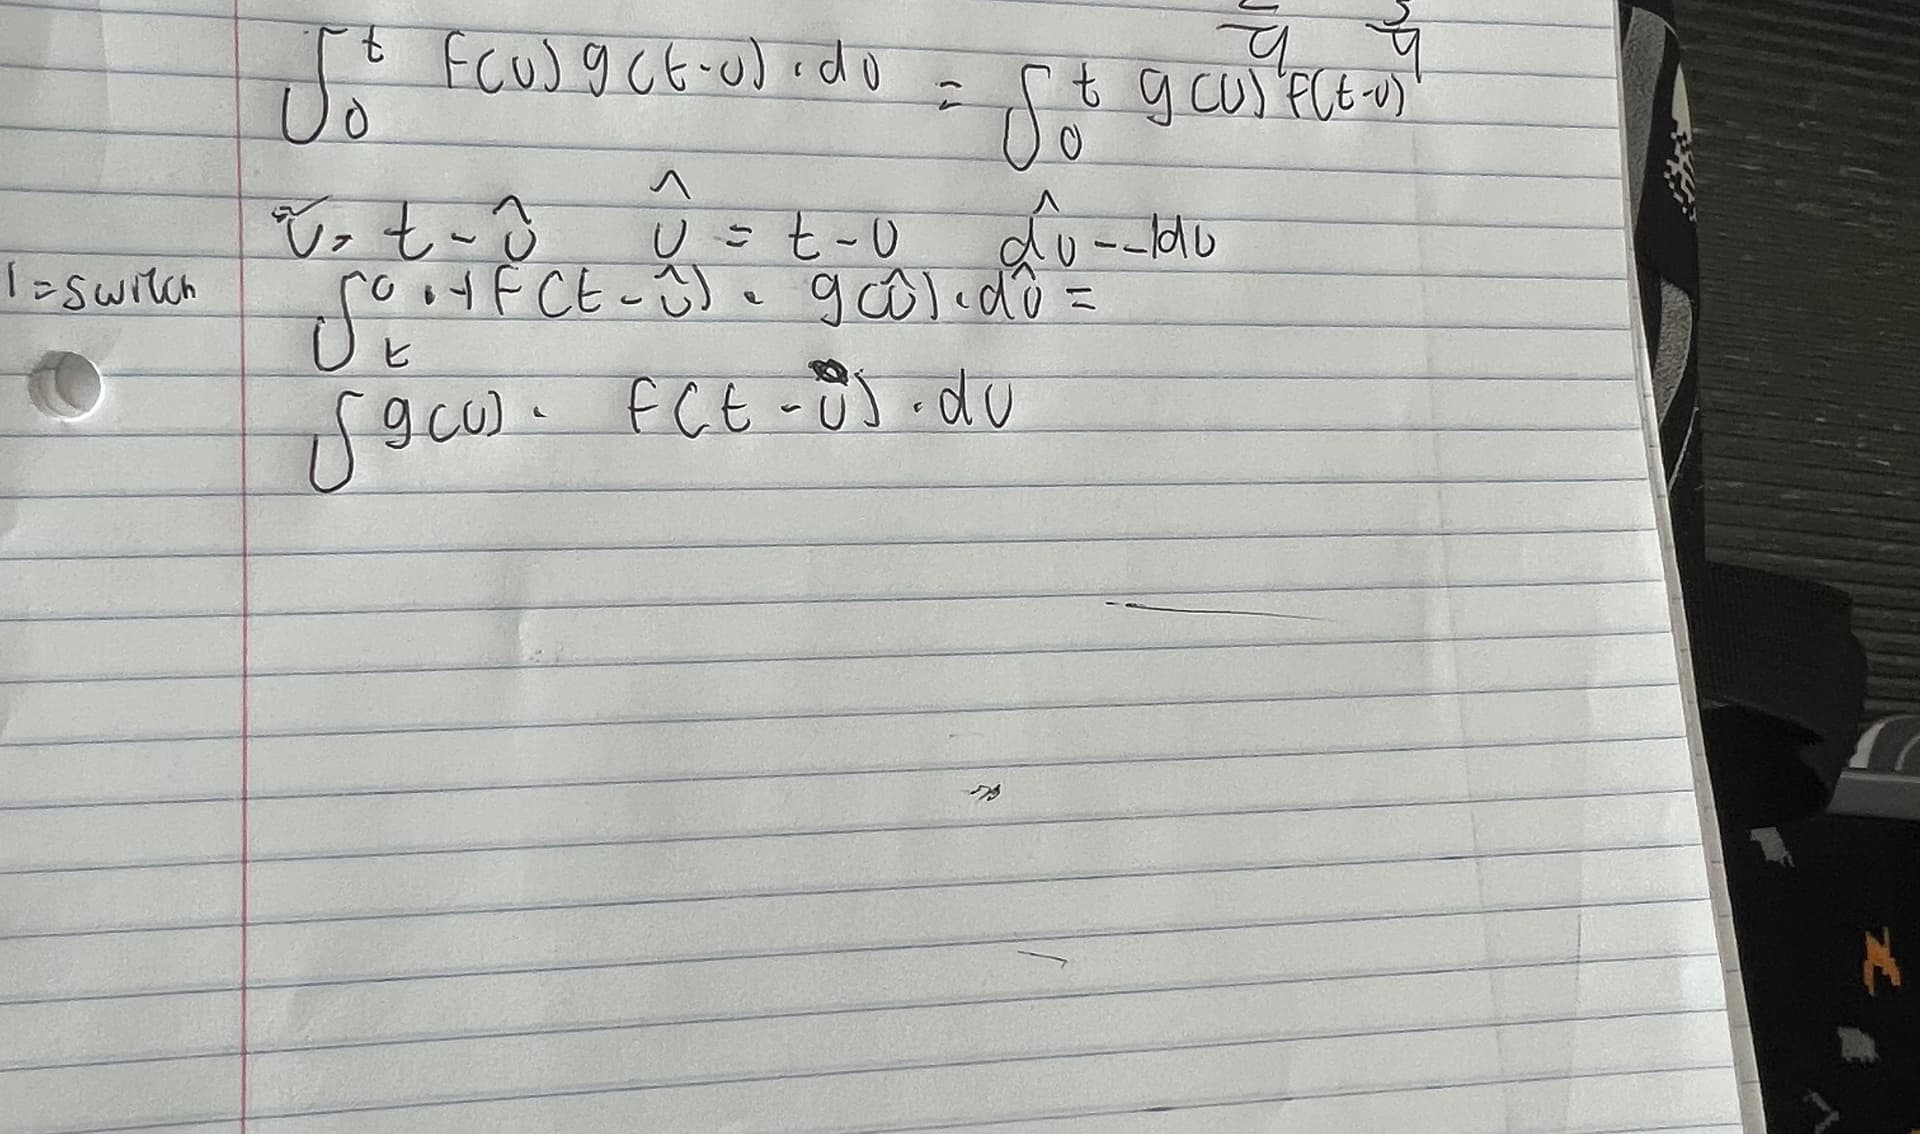 ∫₀ᵗ f(u) g(t-u) · du = ∫₀ᵗ g(u) f(t-u)
u = t - û   û = t - u   dû = -1du
1 = switch   ∫ₜ⁰ · -1 f(t - û) · g(û) · dû =
∫ g(u) · f(t - u) · du